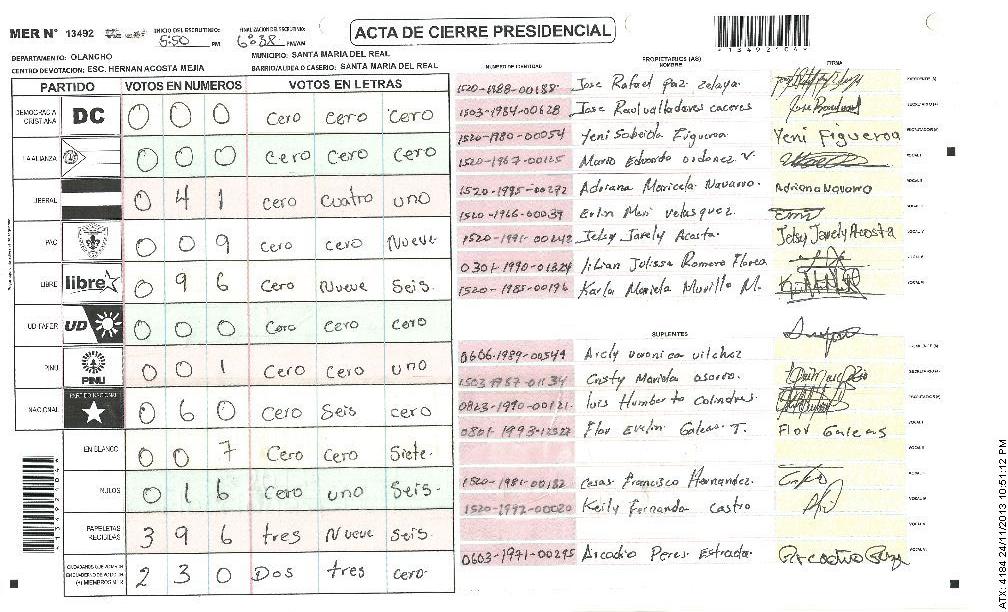 MER N° 13492 INICIO DEL ESCRUTINIO: 5:50 PM FINALIZACION DEL ESCRUTINIO: 6:38 PM/AM
ACTA DE CIERRE PRESIDENCIAL
DEPARTAMENTO: OLANCHO MUNICIPIO: SANTA MARIA DEL REAL
CENTRO DEVOTACION: ESC. HERNAN ACOSTA MEJIA BARRIO/ALDEA O CASERIO: SANTA MARIA DEL REAL
PARTIDO VOTOS EN NUMEROS VOTOS EN LETRAS
DEMOCRACIA CRISTIANA DC 0 0 0 cero cero cero
LA ALIANZA 0 0 0 cero cero cero
LIBERAL 0 4 1 cero cuatro uno
PAC 0 0 9 cero cero Nueve
LIBRE libre 0 9 6 Cero Nueve Seis.
UD FAPER UD 0 0 0 cero cero cero
PINU PINU 0 0 1 Cero Cero uno
NACIONAL PARTIDO NACIONAL 0 6 0 Cero Seis cero
EN BLANCO 0 0 7 Cero Cero Siete.
NULOS 0 1 6 Cero uno Seis.
PAPELETAS RECIBIDAS 3 9 6 tres Nueve Seis.
2 3 0 Dos tres cero.
PROPIETARIOS (AS)
NUMERO DE IDENTIDAD NOMBRE FIRMA
1520-1988-00188 Jose Rafael paz zelaya
1503-1984-00628 Jose Raul valladares caceres
1520-1980-00054 Yeni Sobeida Figueroa Yeni Figueroa
1520-1967-00125 Mario Edgardo ordonez V.
1520-1995-00272 Adriana Maricela Navarro. Adriana Navarro
1520-1966-00039 Erlin Meri velasquez.
1520-1991-00242 Jetsy Jarely Acosta. Jetsy Jarely Acosta
0301-1990-01324 lilian Julissa Romero Flores
1520-1985-00196 Karla Mariela Murillo M.
SUPLENTES
0606-1989-00549 Arely veronica vilchez
1503-1987-01134 Cristy Mariela osorio.
0823-1990-00121 luis Humberto Colindres.
0801-1993-12327 Flor Evelin Galeas T. Flor Galeas
1520-1981-00182 Cesar Francisco Hernandez.
1520-1992-00020 Keily Fernanda Castro
0603-1971-00295 Arcadio Peres Estrada.
ATX: 4184 24/11/2013 10:51:12 PM